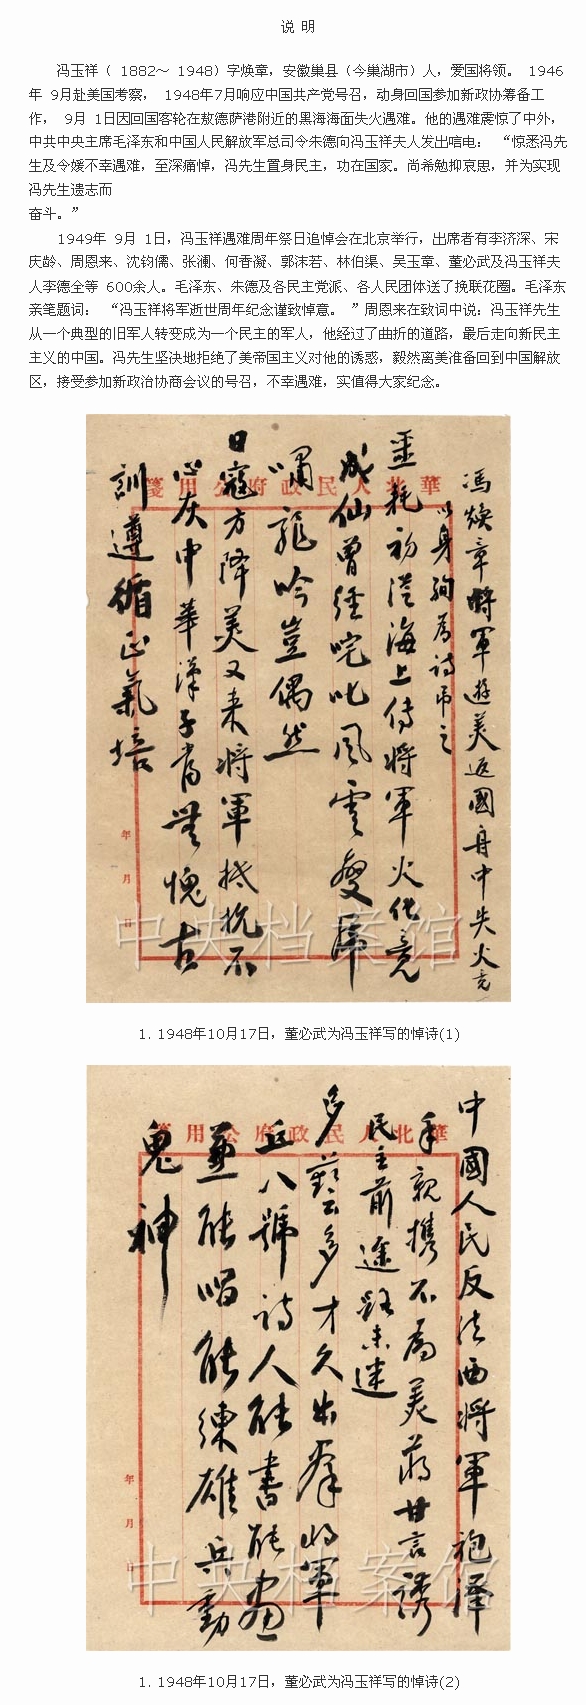 说 明
冯玉祥（ 1882～ 1948）字焕章，安徽巢县（今巢湖市）人，爱国将领。 1946
年 9月赴美国考察， 1948年7月响应中国共产党号召，动身回国参加新政协筹备工
作， 9月 1日因回国客轮在敖德萨港附近的黑海海面失火遇难。他的遇难震惊了中外，
中共中央主席毛泽东和中国人民解放军总司令朱德向冯玉祥夫人发出唁电： “惊悉冯先
生及令嫒不幸遇难，至深痛悼，冯先生置身民主，功在国家。尚希勉抑哀思，并为实现
冯先生遗志而
奋斗。”
1949年 9月 1日，冯玉祥遇难周年祭日追悼会在北京举行，出席者有李济深、宋
庆龄、周恩来、沈钧儒、张澜、何香凝、郭沫若、林伯渠、吴玉章、董必武及冯玉祥夫
人李德全等 600余人。毛泽东、朱德及各民主党派、各人民团体送了挽联花圈。毛泽东
亲笔题词： “冯玉祥将军逝世周年纪念谨致悼意。 ”周恩来在致词中说：冯玉祥先生
从一个典型的旧军人转变成为一个民主的军人，他经过了曲折的道路，最后走向新民主
主义的中国。冯先生坚决地拒绝了美帝国主义对他的诱惑，毅然离美准备回到中国解放
区，接受参加新政治协商会议的号召，不幸遇难，实值得大家纪念。
華北人民政府公用箋
馮煥章將軍遊美返國舟中失火竟
以身殉為詩弔之
噩耗初從海上傳將軍火化竟
成仙曾經咤叱風雲變虎
嘯龍吟豈偶然
日寇方降美又来將軍抵抗不
心灰中華漢子当無愧古
訓遵循正氣培
年
月
日
中央档案馆
1. 1948年10月17日，董必武为冯玉祥写的悼诗(1)
華北人民政府公用箋
中國人民反法西將軍袍澤
手親携不為美蔣甘言誘
民主前途路未迷
多藝多才久出羣將軍
丘八號詩人能書能畫
兼能唱能練雄兵動
鬼神
年
月
日
中央档案馆
1. 1948年10月17日，董必武为冯玉祥写的悼诗(2)